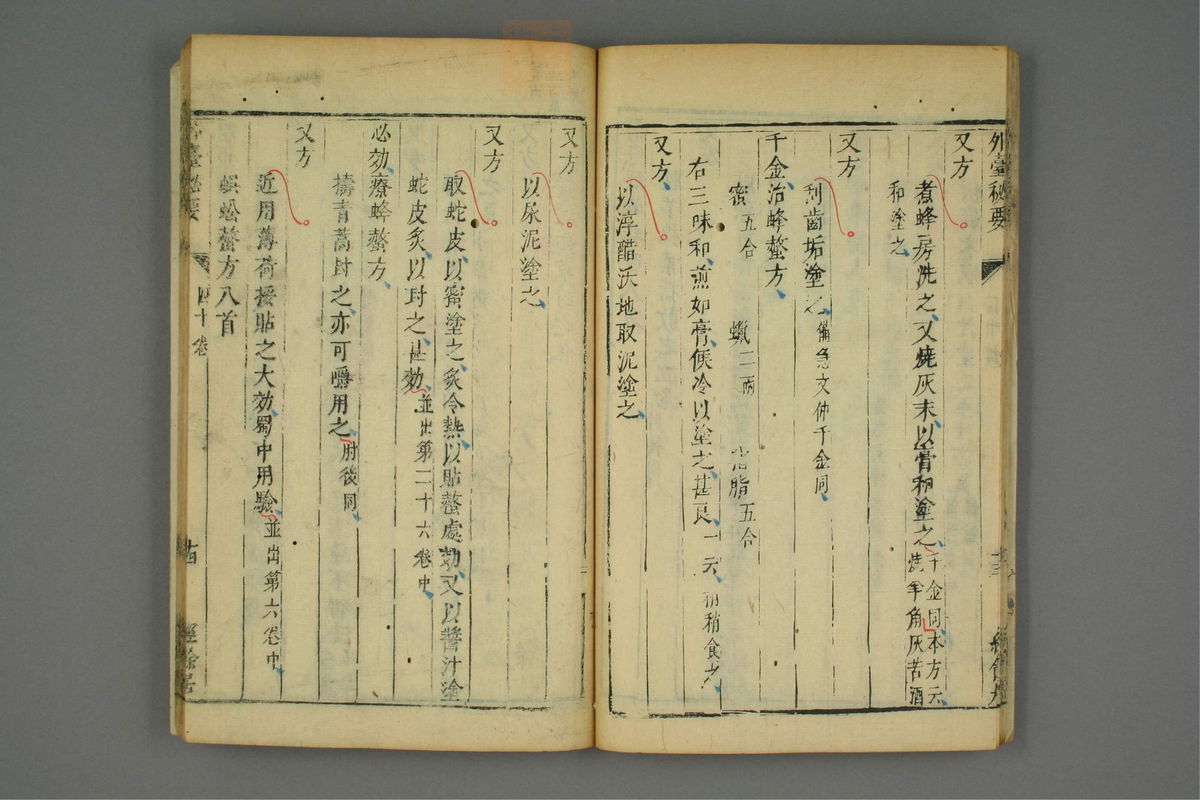 外臺秘要
又方
煮蜂房洗之又燒灰末以膏和塗之千金同本方云燒羊角灰苦酒
和塗之
又方
刮齒垢塗之備急文仲千金同
千金治蜂螫方
蜜五合 蠟二兩 猪脂五合
右三味和煎如膏候冷以塗之甚良一云稍稍食之
又方
以淳醋沃地取泥塗之
又方
以尿泥塗之
又方
取蛇皮以蜜塗之炙令熱以貼螫處効又以醬汁塗
蛇皮炙以封之甚効並出第二十六卷中
必効療蜂螫方
擣青蒿封之亦可嚼用之肘後同
又方
近用薄荷挼貼之大効蜀中用驗並出第六卷中
蜈蚣螫方八首
臺秘要 四十卷 十四 經餘居